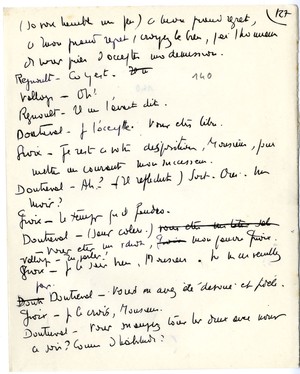 127
(Sa voix tremble un peu) à mon grand regret,
à mon grand regret, croyez le bien, j'ai l'honneur
de vous prier d'accepter ma démission.
Regnault – Ça y est.
140
Valloys – Oh!
Regnault – Il me l'avait dit.
Doutreval – J'accepte. Vous êtes libre.
Groix – Je reste à votre disposition, Monsieur, pour
mettre au courant mon successeur.
Doutreval – Ah? (Il réfléchit) Soit. Oui. Un
mois?
Groix – Le temps qu'il faudra.
Doutreval – (sans colère)
– Vous êtes un idiot, mon pauvre Groix.
Groix – Je le sais bien, Monsieur. Ne m'en veuillez
pas.
Doutreval – Vous m'avez été dévoué et fidèle.
Groix – Je le crois, Monsieur.
Doutreval – Vous mangez tous les deux avec nous
ce soir? Comme d'habitude?